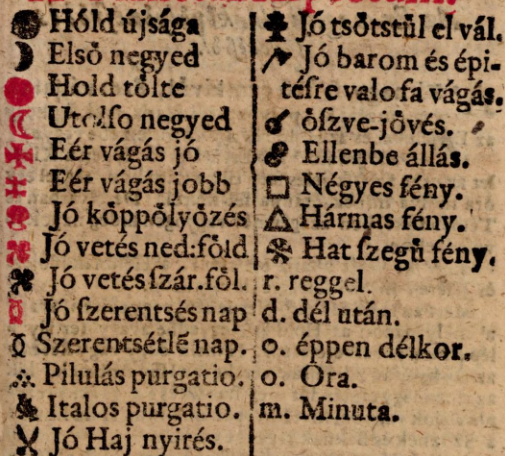 Hóld újsága
Elsö negyed
Hold tölte
Utolso negyed
Eér vágás jó
Eér vágás jobb
Jó köppölyözés
Jó vetés ned:föld
Jó vetés ſzár.föl.
Jó ſzerentsés nap
Szerentsétlē nap.
Pilulás purgatio.
Italos purgatio.
Jó Haj nyirés.
Jó tsötstül el vál.
Jó barom és épi-
tésre valo fa vágás.
öſzve-jövés.
Ellenbe állás.
Négyes fény.
Hármas fény.
Hat ſzegü fény.
r. reggel.
d. dél után.
o. éppen délkor.
o. Ora.
m. Minuta.